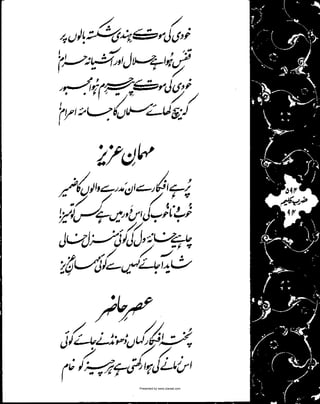 خودی کی موت سے ہندی شکستہ بالوں پر
قفس ہُوا ہے حلال اور آشیانہ حرام!
خودی کی موت سے پیرِ حرم ہُوا مجبور
کہ بیچ کھائے مسلماں کا جامۂ احرام!
مہمانِ عزیز
پُر ہے افکار سے ان مدرسے والوں کا ضمیر
خوب و ناخوب کی اس دور میں ہے کس کو تمیز!
چاہیے خانۂ دل کی کوئی منزل خالی
شاید آجائے کہیں سے کوئی مہمانِ عزیز
عصرِ حاضر
پختہ افکار کہاں ڈھونڈنے جائے کوئی
اس زمانے کی ہوا رکھتی ہے ہر چیز کو خام
۵۹۲
ضربِ کلیم
۹۲
Presented by www.ziaraat.com